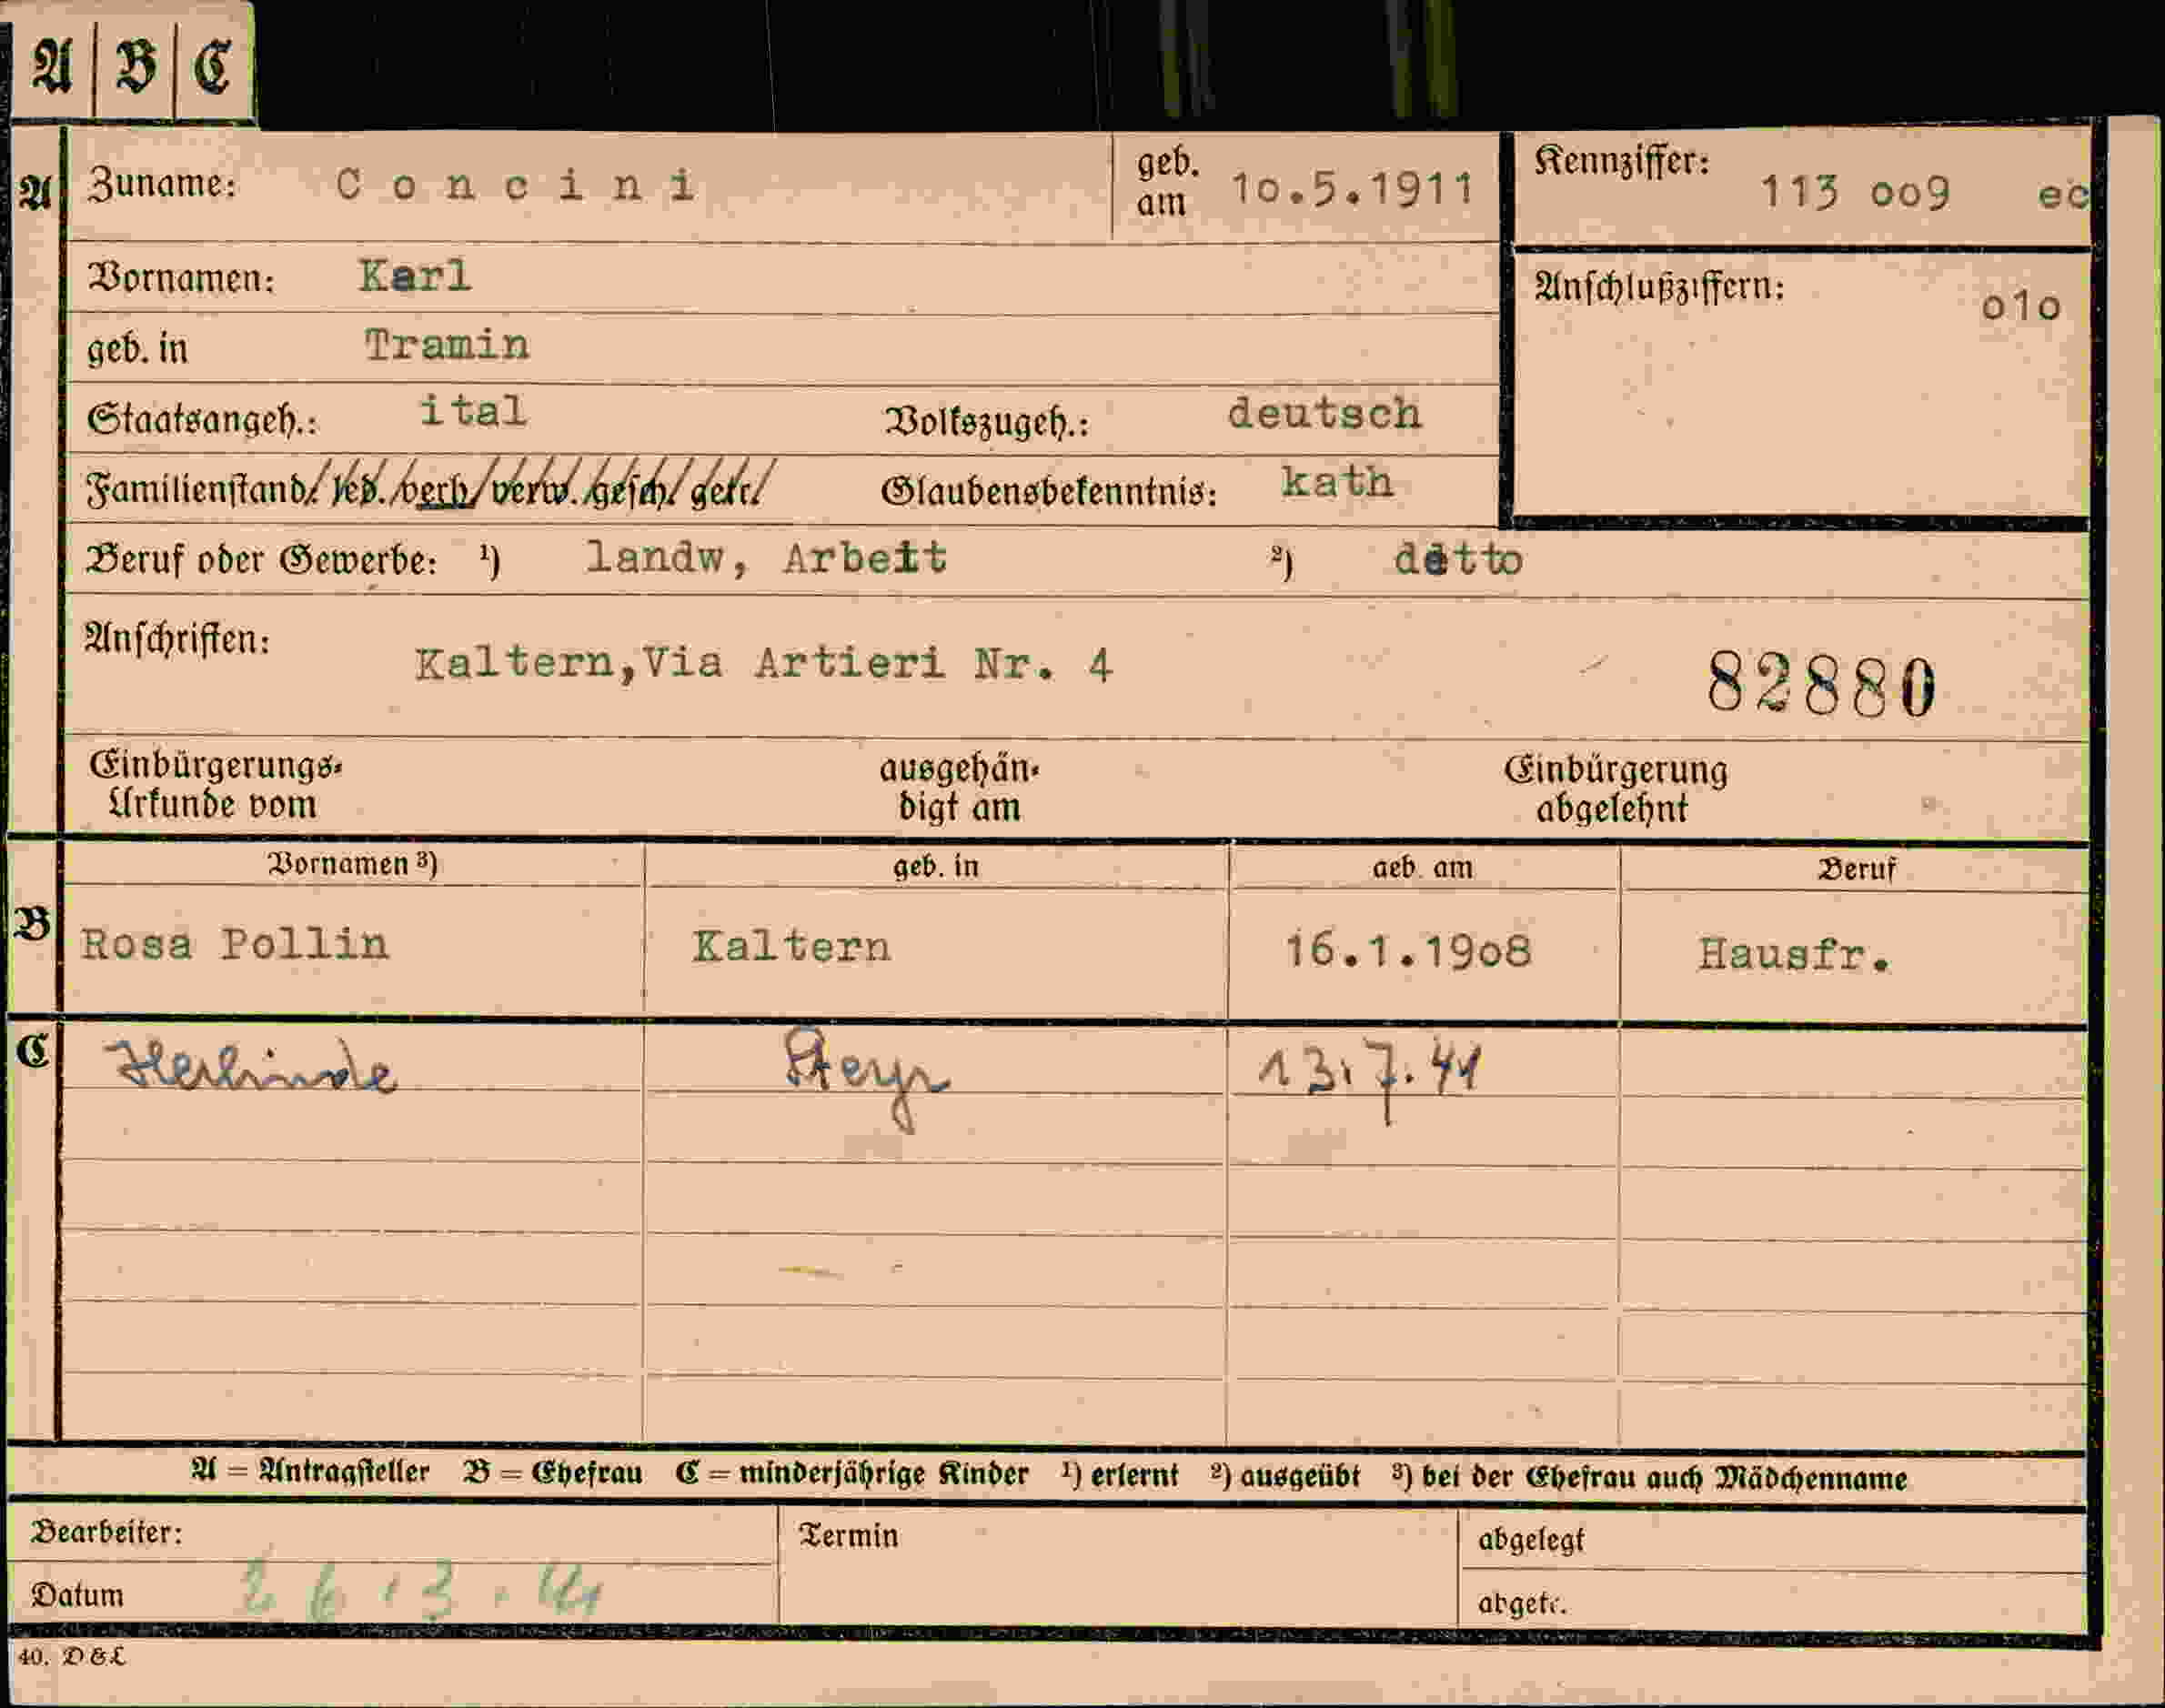 A | B | C
A Zuname: Concini geb. am 10.5.1911 Kennziffer: 113 oo9 ec
Vornamen: Karl Anschlußziffern: o1o
geb. in Tramin
Staatsangeh.: ital Volkszugeh.: deutsch
Familienstand: led./verh/verw./gesch/getr/ Glaubensbekenntnis: kath
Beruf oder Gewerbe: 1) landw, Arbeit 2) detto
Anschriften: Kaltern,Via Artieri Nr. 4 82880
Einbürgerungs- ausgehän- Einbürgerung
Urkunde vom digt am abgelehnt
Vornamen 3) geb. in geb. am Beruf
B Rosa Pollin Kaltern 16.1.19o8 Hausfr.
C Herlinde Steyr 13.7.41
A = Antragsteller B = Ehefrau C = minderjährige Kinder 1) erlernt 2) ausgeübt 3) bei der Ehefrau auch Mädchenname
Bearbeiter: Termin abgelegt
Datum 26.3.41 abgetr.
40. D&L